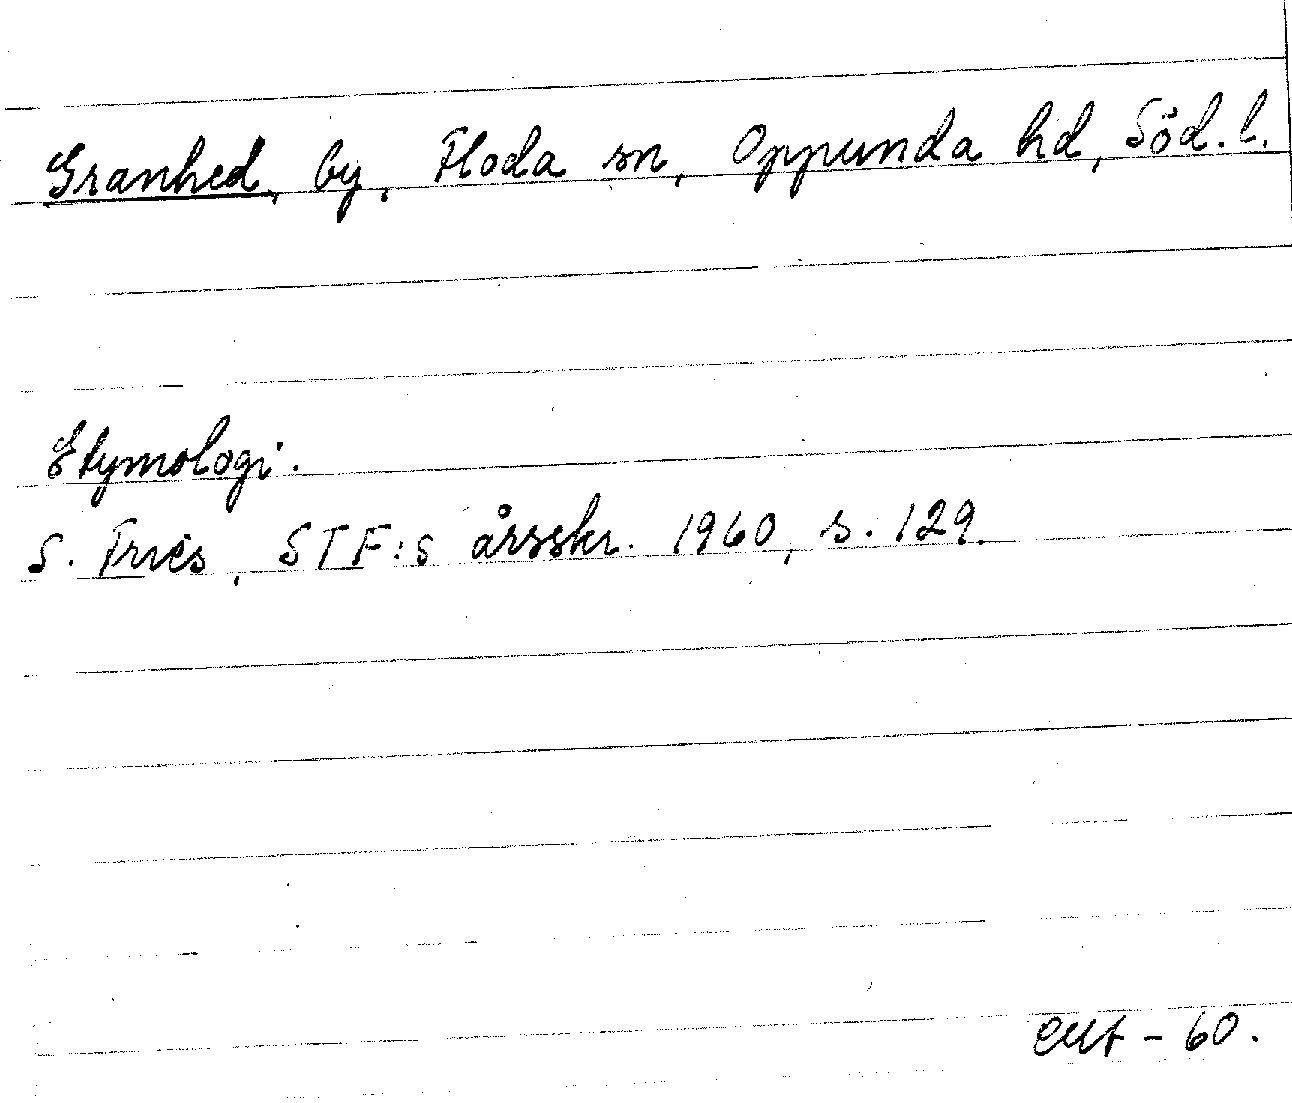 Granhed, by, Floda sn, Oppunda hd, Söd.l.
Etymologi.
S. Fries, STF:s årsskr. 1960, s. 129.
- 60.